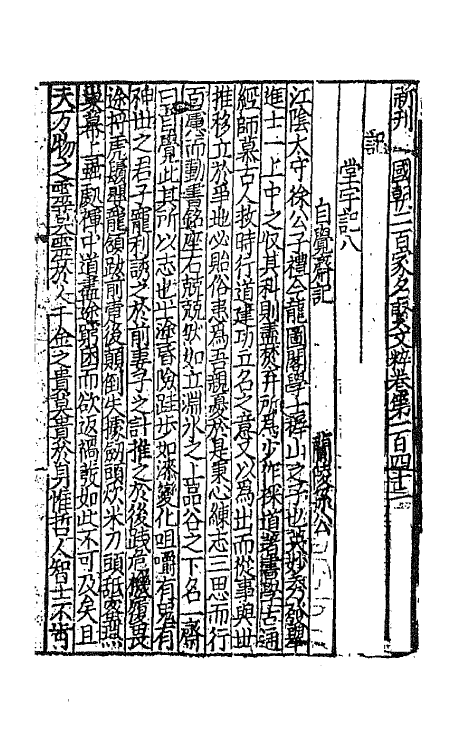 新刊國朝二百家名賢文粹卷第一百四十三
記
堂宇記八
自覺齋記
江陰太守徐公子禮今龍圖閣學士稺山之子也英妙秀發舉
進士一上中之収其科則盡棄弃所為少作採道著書學古通
經師慕古人救時行道建功立名之意又以為出而從事與世
推移立於爭地必貽俗患為吾親憂於是秉心練志三思而行
百慮而動書銘座右兢兢然如立淵氷之上臨谷之下名一齋
曰自覺此其所以志也士塗昏險跬步如漆變化咀嚼有鬼有
神世之君子寵利誘之於前妻子之計推之於後踐危機履畏
途捋虎鬚嬰龍頷跋前疐後顛倒失據劒頭炊米刀頭舐蜜燕
巢幕上蝨處褌中道盡途窮困而欲返禍敗如此不可及矣且
夫万物之靈莫靈於人千金之貴莫貴於身惟哲人智士不苟